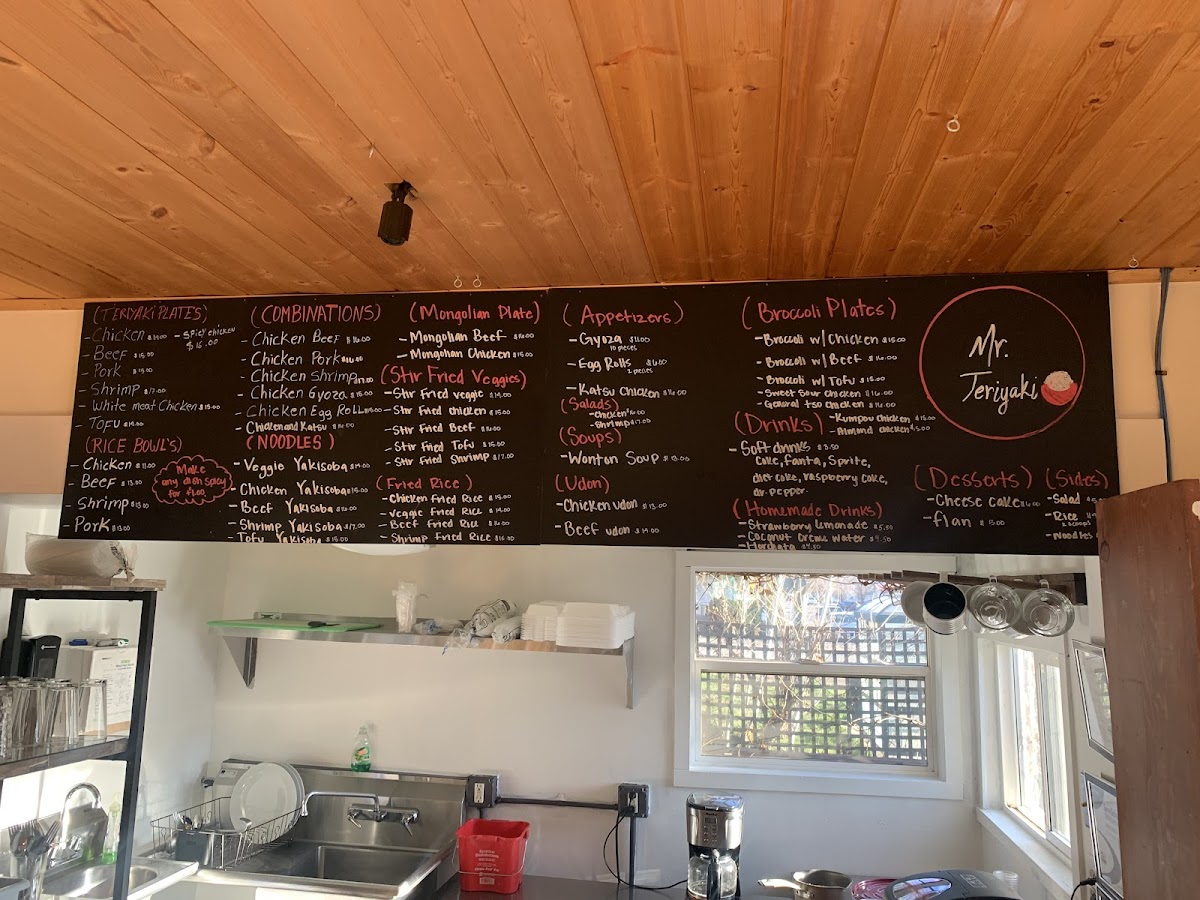 (TERIYAKI PLATES)
- Chicken $14.00 - Spicy chicken
$16.00
- Beef $15.00
- Pork $15.00
- Shrimp $17.00
- White meat Chicken $15.00
- Tofu $14.00
(RICE BOWL'S)
- Chicken $13.00
- Beef $13.00
- Shrimp $13.00
- Pork $13.00
Make
any dish spicy
for $1.00
(COMBINATIONS)
- Chicken Beef $16.00
- Chicken Pork
- Chicken Shrimp $17.00
- Chicken Gyoza $15.00
- Chicken Egg Roll
- Chicken and Katsu
(NOODLES)
- Veggie Yakisoba $14.00
- Chicken Yakisoba
- Beef Yakisoba
- Shrimp Yakisoba $17.00
- Tofu Yakisoba $15.00
(Mongolian Plate)
- Mongolian Beef
- Mongolian Chicken $15.00
(Stir Fried Veggies)
- Stir Fried veggie $14.00
- Stir Fried chicken $15.00
- Stir Fried Beef $16.00
- Stir Fried Tofu $15.00
- Stir Fried Shrimp $17.00
(Fried Rice)
- Chicken Fried Rice $15.00
- Veggie Fried Rice $14.00
- Beef Fried Rice $16.00
- Shrimp Fried Rice
(Appetizers)
- Gyoza
10 pieces
- Egg Rolls $6.00
2 pieces
- Katsu Chicken
(Salads)
- Chicken
- Shrimp $17.00
(Soups)
- Wonton Soup $13.00
(Udon)
- Chicken udon $13.00
- Beef udon $14.00
(Broccoli Plates)
- Broccoli w/ Chicken $15.00
- Broccoli w/ Beef $16.00
- Broccoli w/ Tofu $15.00
- Sweet Sour chicken $16.00
- General tso chicken
- Kumpou chicken $15.00
- Almond chicken
(Drinks)
- Soft drinks $3.50
Coke, Fanta, Sprite,
diet coke, raspberry coke,
dr. pepper.
(Homemade Drinks)
- Strawberry lemonade
- Coconut Creme water
- Horchata
Mr.
Teriyaki
(Desserts)
- Cheese cake
- flan
(Sides)
- Salad
- Rice
2 scoops
- Noodles